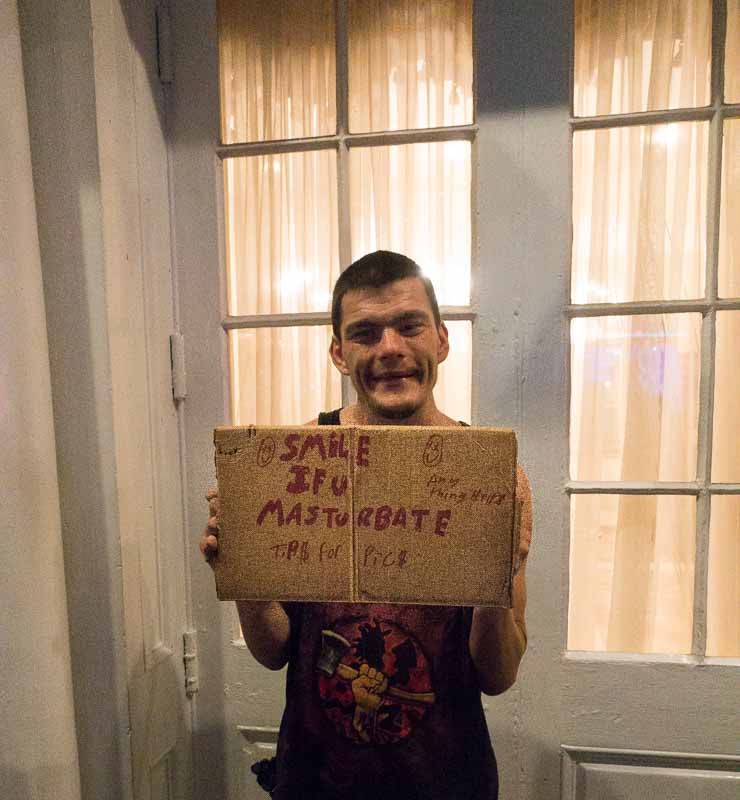 SMiLE
IF U
MASTURBATE
TiP$ for PiC$
Any
thing Helps